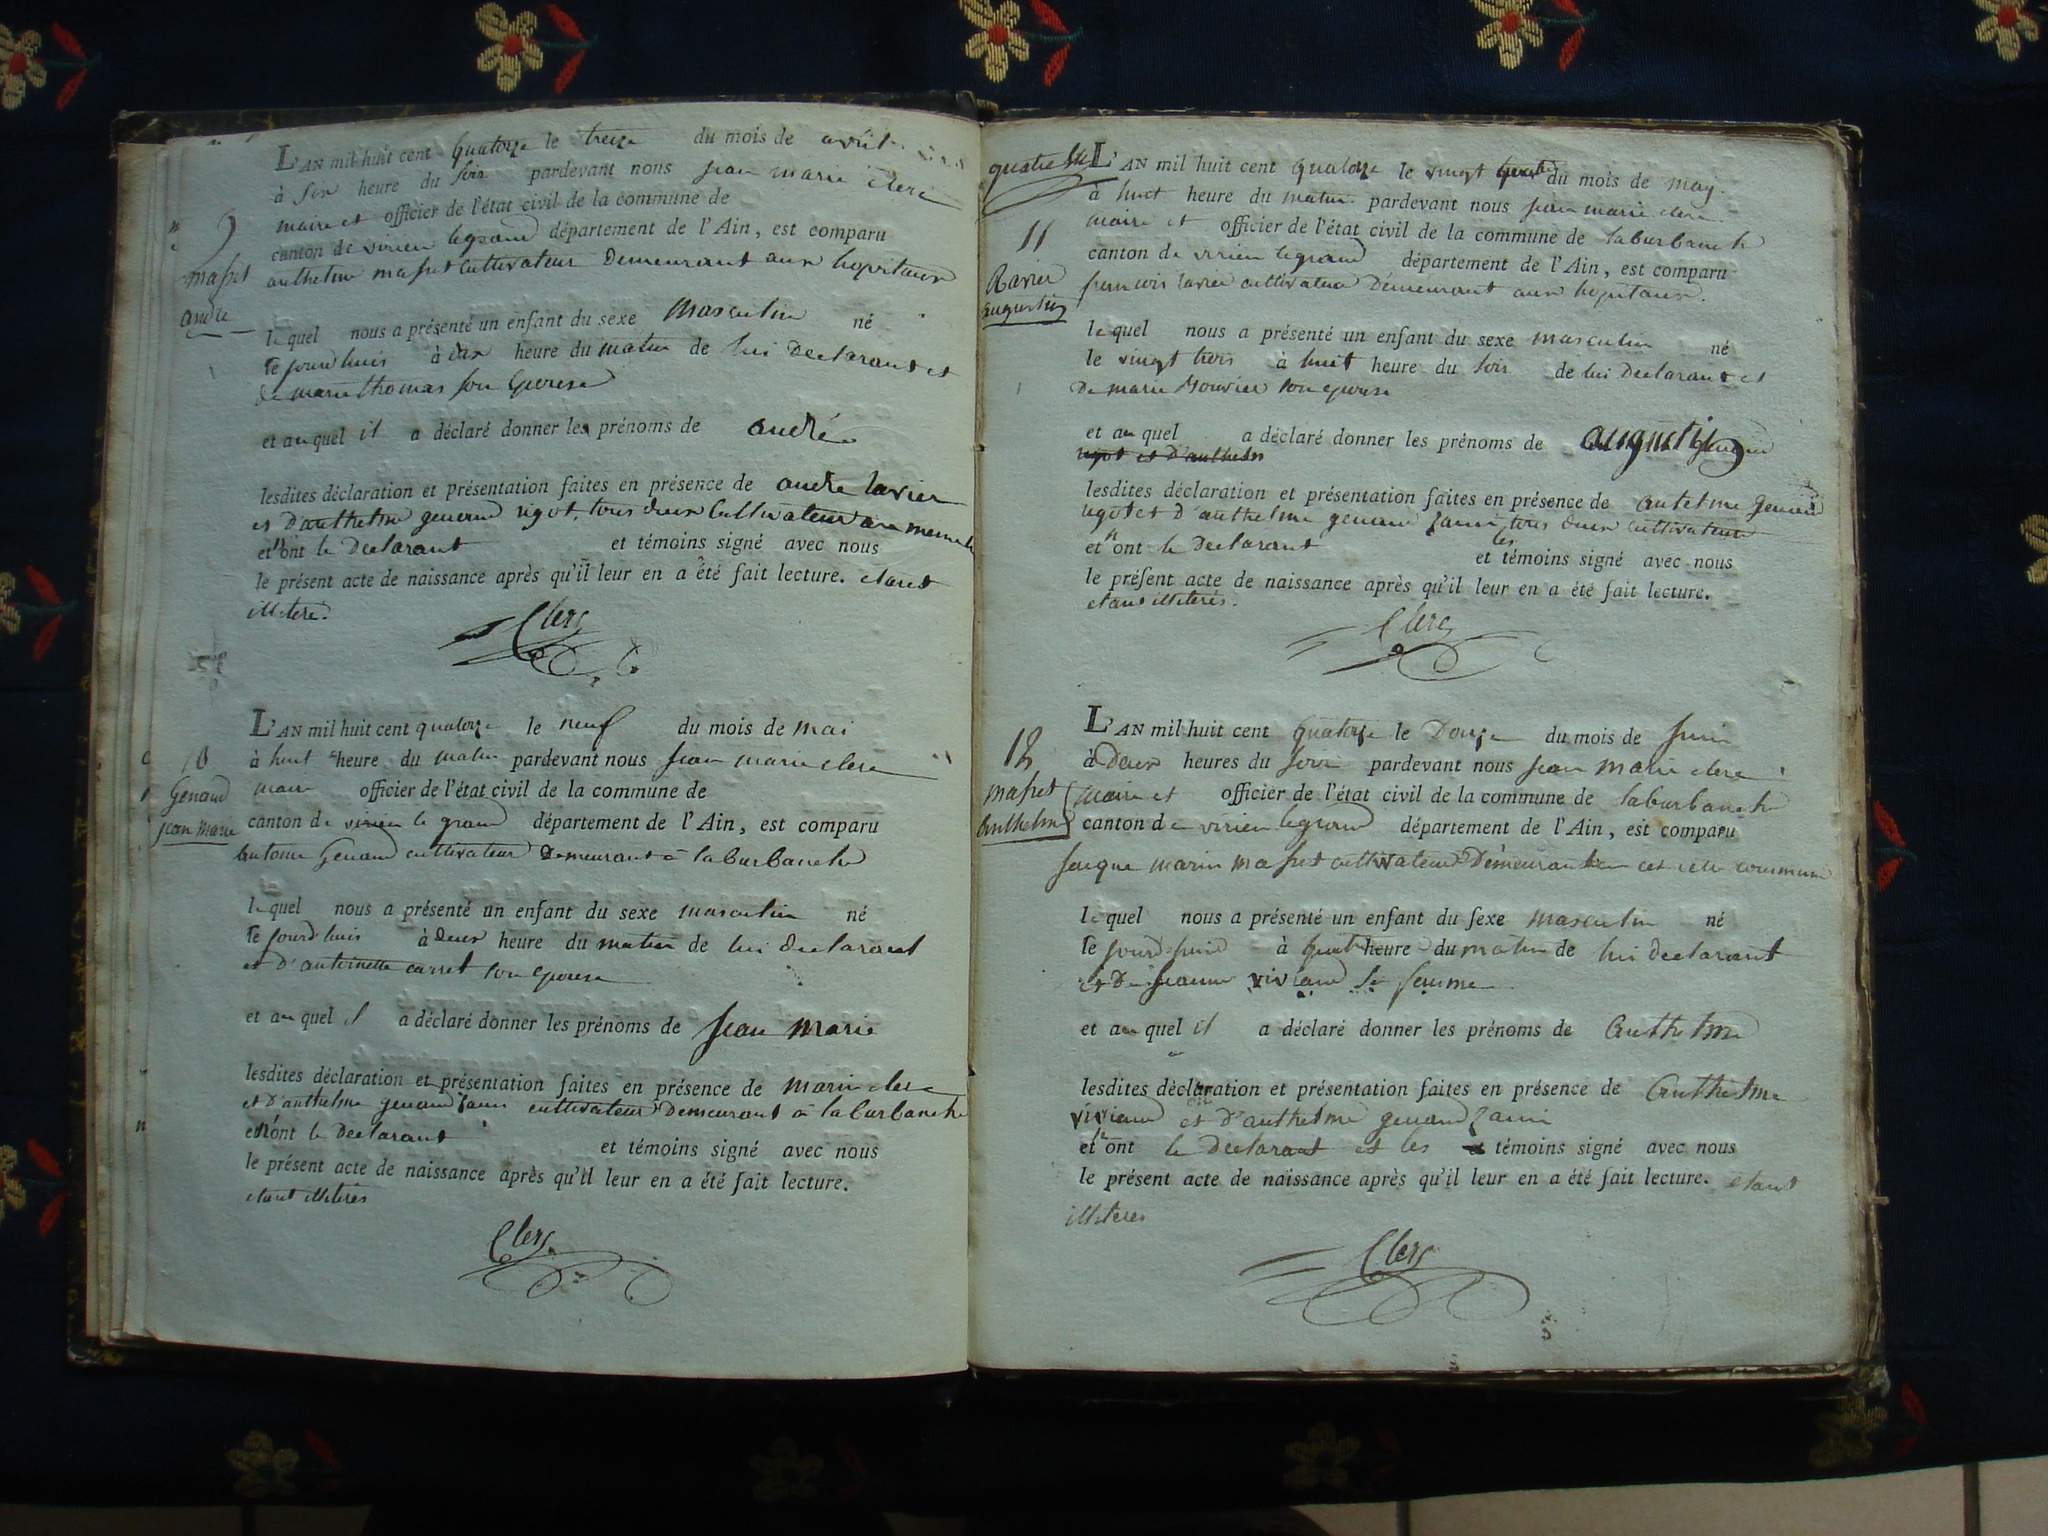 L'AN mil huit cent quatorze le treize du mois de avril
à six heure du soir pardevant nous jean marie clerc
maire et officier de l'état civil de la commune de
canton de virieu legrand département de l'Ain, est comparu
anthelme masset cultivateur Demeurant aux hopitaux
9
masset
andré
lequel nous a présenté un enfant du sexe masculin né
le jourd'huis à heure du matin de lui Declarant et
de marie thomas son Epouse
et auquel il a déclaré donner les prénoms de andré
lesdites déclaration et présentation faites en présence de andre ravier
et D'anthelme genand ugot, tous deux Cultivateur
et n'ont le Declarant et témoins signé avec nous
le présent acte de naissance après qu'il leur en a été fait lecture. etant
illiteré.
Clerc
L'AN mil huit cent quatorze le neuf du mois de mai
à huit heure du matin pardevant nous jean marie clerc
maire officier de l'état civil de la commune de
canton de virieu le grand département de l'Ain, est comparu
antoine Genand cultivateur Demeurant à laburbanche
10
Genand
jean marie
lequel nous a présenté un enfant du sexe masculin né
le jourd'huis à deux heure du matin de lui declarant
et d'antoinette carret son epouse
et auquel il a déclaré donner les prénoms de jean marie
lesdites déclaration et présentation faites en présence de marin clerc
et D'anthelme genand janin cultivateur Demeurant à laburbanche
et n'ont le Declarant et témoins signé avec nous
le présent acte de naissance après qu'il leur en a été fait lecture.
etant illiterés
Clerc
L'AN mil huit cent quatorze le vingt quatre du mois de may
à huit heure du matin pardevant nous jean marie clerc
maire et officier de l'état civil de la commune de laburbanche
canton de virieu legrand département de l'Ain, est comparu
francois ravier cultivateur Demeurant aux hopitaux.
11
Ravier
augustin
lequel nous a présenté un enfant du sexe masculin né
le vingt trois à huit heure du soir de lui Declarant et
De marie Bouvier son epouse
et auquel a déclaré donner les prénoms de augustin
ugot et d'anthelm
lesdites déclaration et présentation faites en présence de antelme genand
ugot et d'anthelme genand janin tous deux cultivateur
et n'ont le Declarant et les témoins signé avec nous
le présent acte de naissance après qu'il leur en a été fait lecture.
etant illiterés.
Clerc
L'AN mil huit cent quatorze le Douze du mois de juin
à Deux heures du soir pardevant nous jean marie clerc
maire et officier de l'état civil de la commune de laburbanche
canton de virieu legrand département de l'Ain, est comparu
jacque marin masset cultivateur Demeurant en cette commune
12
masset
Anthelme
lequel nous a présenté un enfant du sexe masculin né
le jourd'huis à quatre heure du matin de lui declarant
et De jeanne viviand sa femme
et auquel il a déclaré donner les prénoms de Anthelme
lesdites déclaration et présentation faites en présence de Anthelme
viviand et d'anthelme genand janin
et n'ont le Declarant et les témoins signé avec nous
le présent acte de naissance après qu'il leur en a été fait lecture. etant
illiterés
Clerc